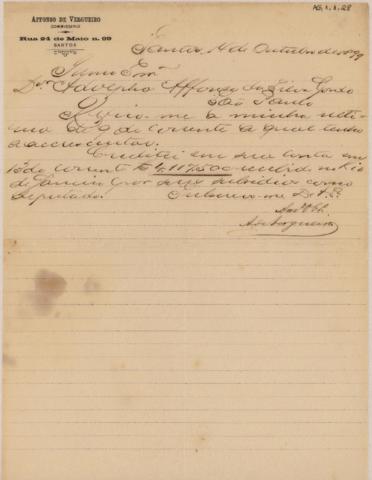 AG.1.1.28
AFFONSO DE VERGUEIRO
COMMISSARIO
Rua 24 de Maio n. 99
SANTOS
Santos, de Outubro de 1899
Illmo Exmo
Dor Adolpho Affonso da Silva Gordo
São Paulo
Refiro-me a minha ulti-
ma de 9 do corrente a qual tenho
a accrescentar:
Creditei em sua conta em
13 do corrente recebid. no Rio
de Janeiro por seus subsidios como
Deputado. Subscrevo-me D. V. Ex.
A de Vergueiro